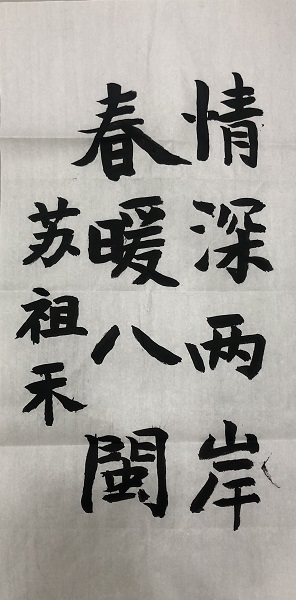 情深两岸
春暖八闽
苏祖禾